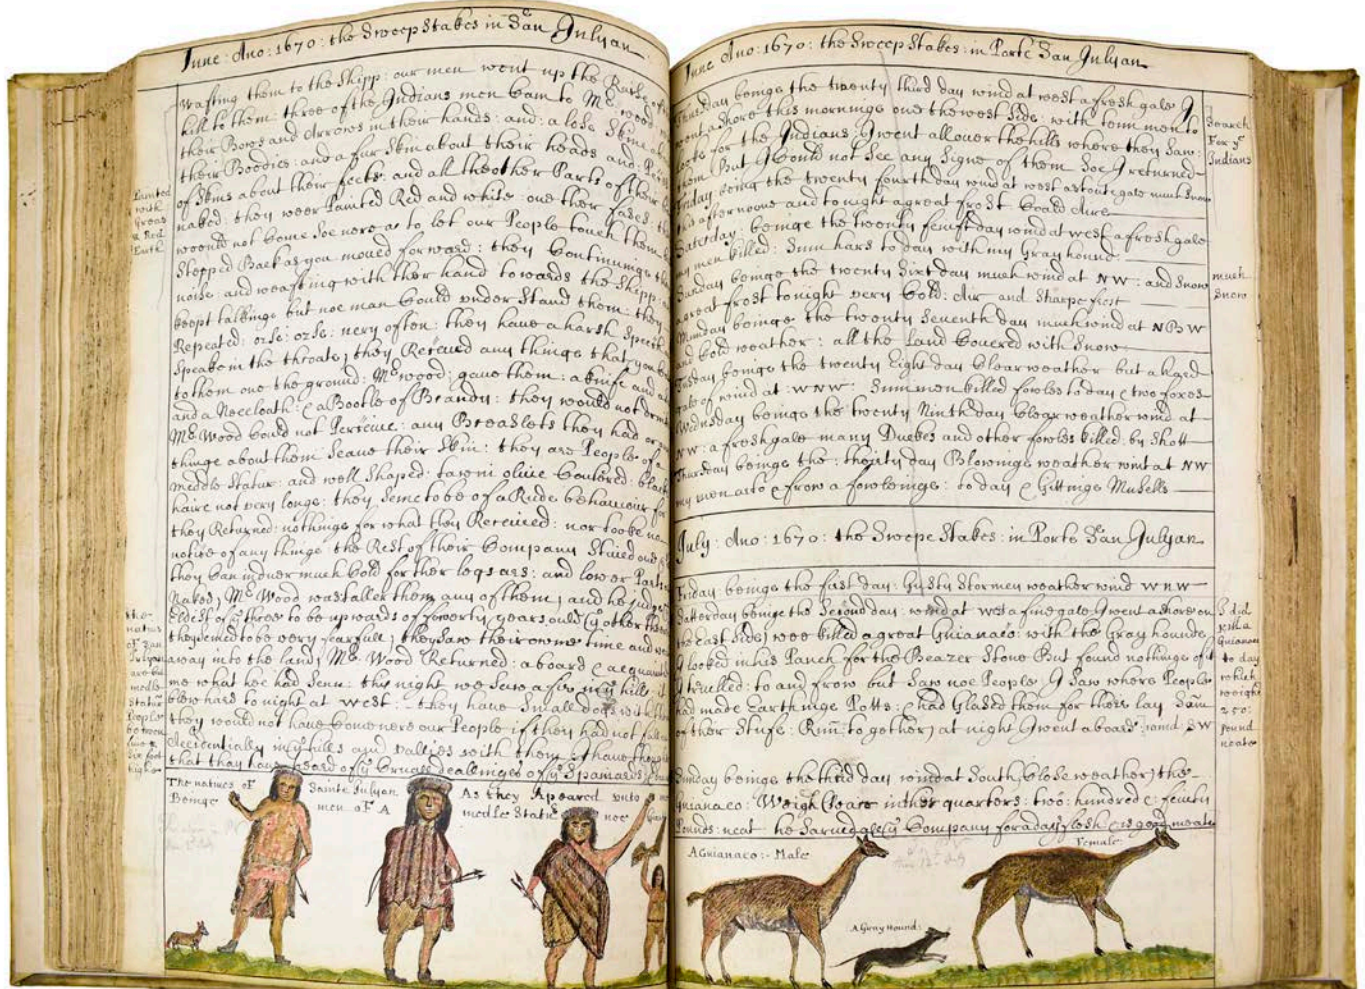 June: Ano: 1670: the SweepStakes in San Julyan
wafting them to the Shipp: our men went up the
hill to them three of the Indians men Cam to Mr wood
their Bowes and Arrows in their hands: and: a lose Skinn
their Boodies: and a fur Skin about their heads and:
of Skins about their feete: and all the other Parts of their
naked: they weer Painted Red and white: one ther faces
woould not Come Soe nere as to let our People touch them
Stepped Back as you moued forward: they Continuinge
noise and weafting with ther hand towards the Shipp:
keept talkinge but noe man Could vnder Stand them: they
Repeated: ozse: ozse: uery often: they haue a harsh Speech
Speake in the throate; they Receued any things that you
to them one the ground: Mr wood: gaue them: a knife and
and a Neccloath: & a Bootle of Brandy: they would not
Mr Wood Could not Perceiue: any Breaslets they had or
thinge about them Seaue their Skin: they are People of a
middle Statur: and well Shaped: tawni oliue Coulored: black
haire not very longe: they Seme to be of a Rude behauiour
they Returned: nothinge for what they Receiued: nor tooke no
notice of any thinge the Rest of their Company Staied
they Can induer much Cold for ther legs ars: and lower Parts
Naked; Mr Wood was taller then any of them; and he judged
Eldest of ye three to be upwards of fowerty years ould ye other
they Semed to be very fearfull; they Saw their owne time and went
away into the land; Mr Wood Returned: aboard & acquainted
me what hee had Seen: this night we Saw a fire in ye hills it
blew hard to night at west: they haue Small dogs with
they would not haue Come nere our People if they had not
accidentially in ye hills and vallies with them I haue
that they haue heard of ye Cruger deallinges of ye Spaniards
Painted
with
Greas
& Red
Earth
the
natius
of San
Julyan
are
medle
Statur
People
between
fiue &
six foot
highe
The natiues of Sainte Julyan As they Apeared vnto
Beinge men of A medle Statur
June Ano: 1670: the SweepStakes: in Porte San Julyan
Thursday beinge the twenty third day wind at west a fresh gale I
went a Shore this morninge one the west Side: with tenn men to
for the Indians: I went all ouer the hills where they Saw:
them But I Could not See any Signe of them Soe I returned
Friday being the twenty fourth day wind at west a stout gate much Snow
this afternoone and to night a great frost Could Aire
Saterday: beinge the twenty feift day wind at west a fresh gale
my men killed: Sum hars to day with my Grayhound:
Sunday beinge the twenty Sixt day much wind at NW: and Snow
a great frost to night very Cold: Air and Sharpe frost
Munday beinge the twenty Seuenth day much wind at NBW
and Cold weather: all the Land Couered with Snow
Tusday beinge the twenty Eight day Clear weather but a hard
gale of wind at: WNW: Summen killed fowles to day & two foxes
Wednsday beinge the twenty Ninth day Clear weather wind at
NW: a fresh gale many Duckes and other fowles killed: by Shott
Thursday beinge the: thirty day Blowinge weather wind at NW
my men a too & frow a fowleinge: to day & Gittinge Mussells
Search
For ye
Indians
much
Snow
July: Ano: 1670: the Sweepe Stakes: in Porte San Julyan
Friday beinge the first day: Gusty Stormey weather wind WNW
Satterday beinge the Second day: wind at west a fine gale I went ashore on
the East Side) wee killed a great Guianaco: with the Grayhounde
I looked in his Panch for the Beazer Stone But found nothinge of it
I trauelled: to and frow but Saw noe People I Saw where People
had made Earthinge Potts: & had Glased them for theire lay Sum
of ther Stufe: Runn: together; at night I went aboard: wind SW
I did
kill a
Guianaco
to day
which
weighd
250:
pound
neate
Sunday beinge the third day wind at South, Close weather; the
Guianaco: Weigh Cleare in his quarters: two: hundred & feifty
Pounds: neat he Sarued all ye Company for a days flesh & is good meate
A Guianaco: - Male
Female:
A Grey Hound: